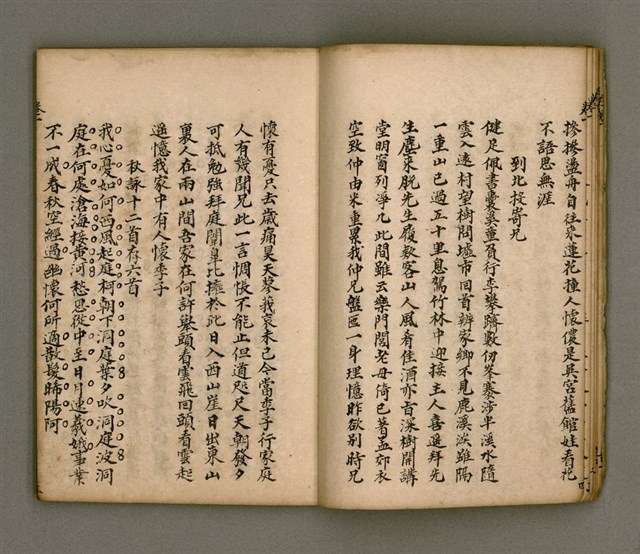 摻摻盪舟自往來蓮花撞人懷儂是吳宮舊館娃看花
不語思無涯
到北投寄兄
健足佩書囊裹重負行李攀躋數仞峯褰涉半溪水隨
雲入遠村望樹問墟市回首辨家鄉不見鹿溪涘雖隔
一重山已過五十里息駕竹林中迎接主人喜還拜先
生塵來脫先生履歎客山人風肴佳酒亦旨深樹開講
堂明窗列淨几此間雖云樂門閭老母倚已著孟郊衣
空致仲由米重累我仲兄盤匜一身理憶昨欲別時兄
懷有憂只去歲痛昊天蓼我哀未已今當季子行家庭
人有幾聞兄此一言惆悵不能止但道咫尺天朝發夕
可抵勉強拜庭闈皋比擁於此日入西山崖日出東山
裏人在雨山間吾家在何許舉頭看雲飛回頭看雲起
遥憶我家中有人懷季子
秋詠十二首存六首
我心憂如何西風起庭柯朝下洞庭葉夕吹洞庭波洞
庭在何處滄海接黃河愁思從中至日月速羲娥事業
不一成春秋空經過幽懷何所適散髮晞陽阿